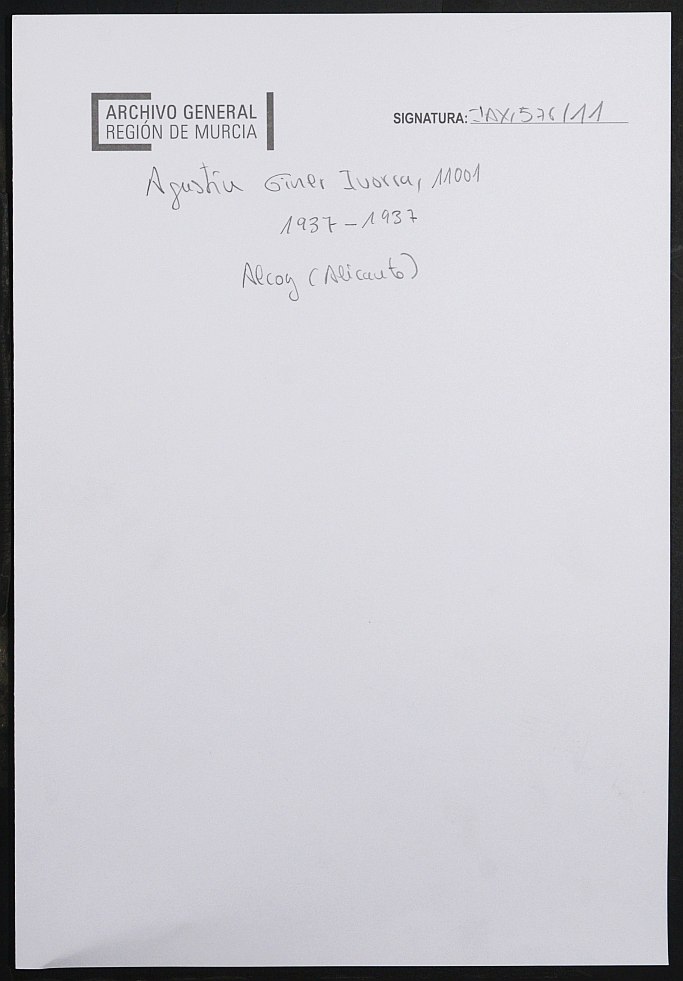 ARCHIVO GENERAL
REGIÓN DE MURCIA
SIGNATURA: JAX,576/11
Agustín Giner Ivorra, 11001
1937-1937
Alcoy (Alicante)